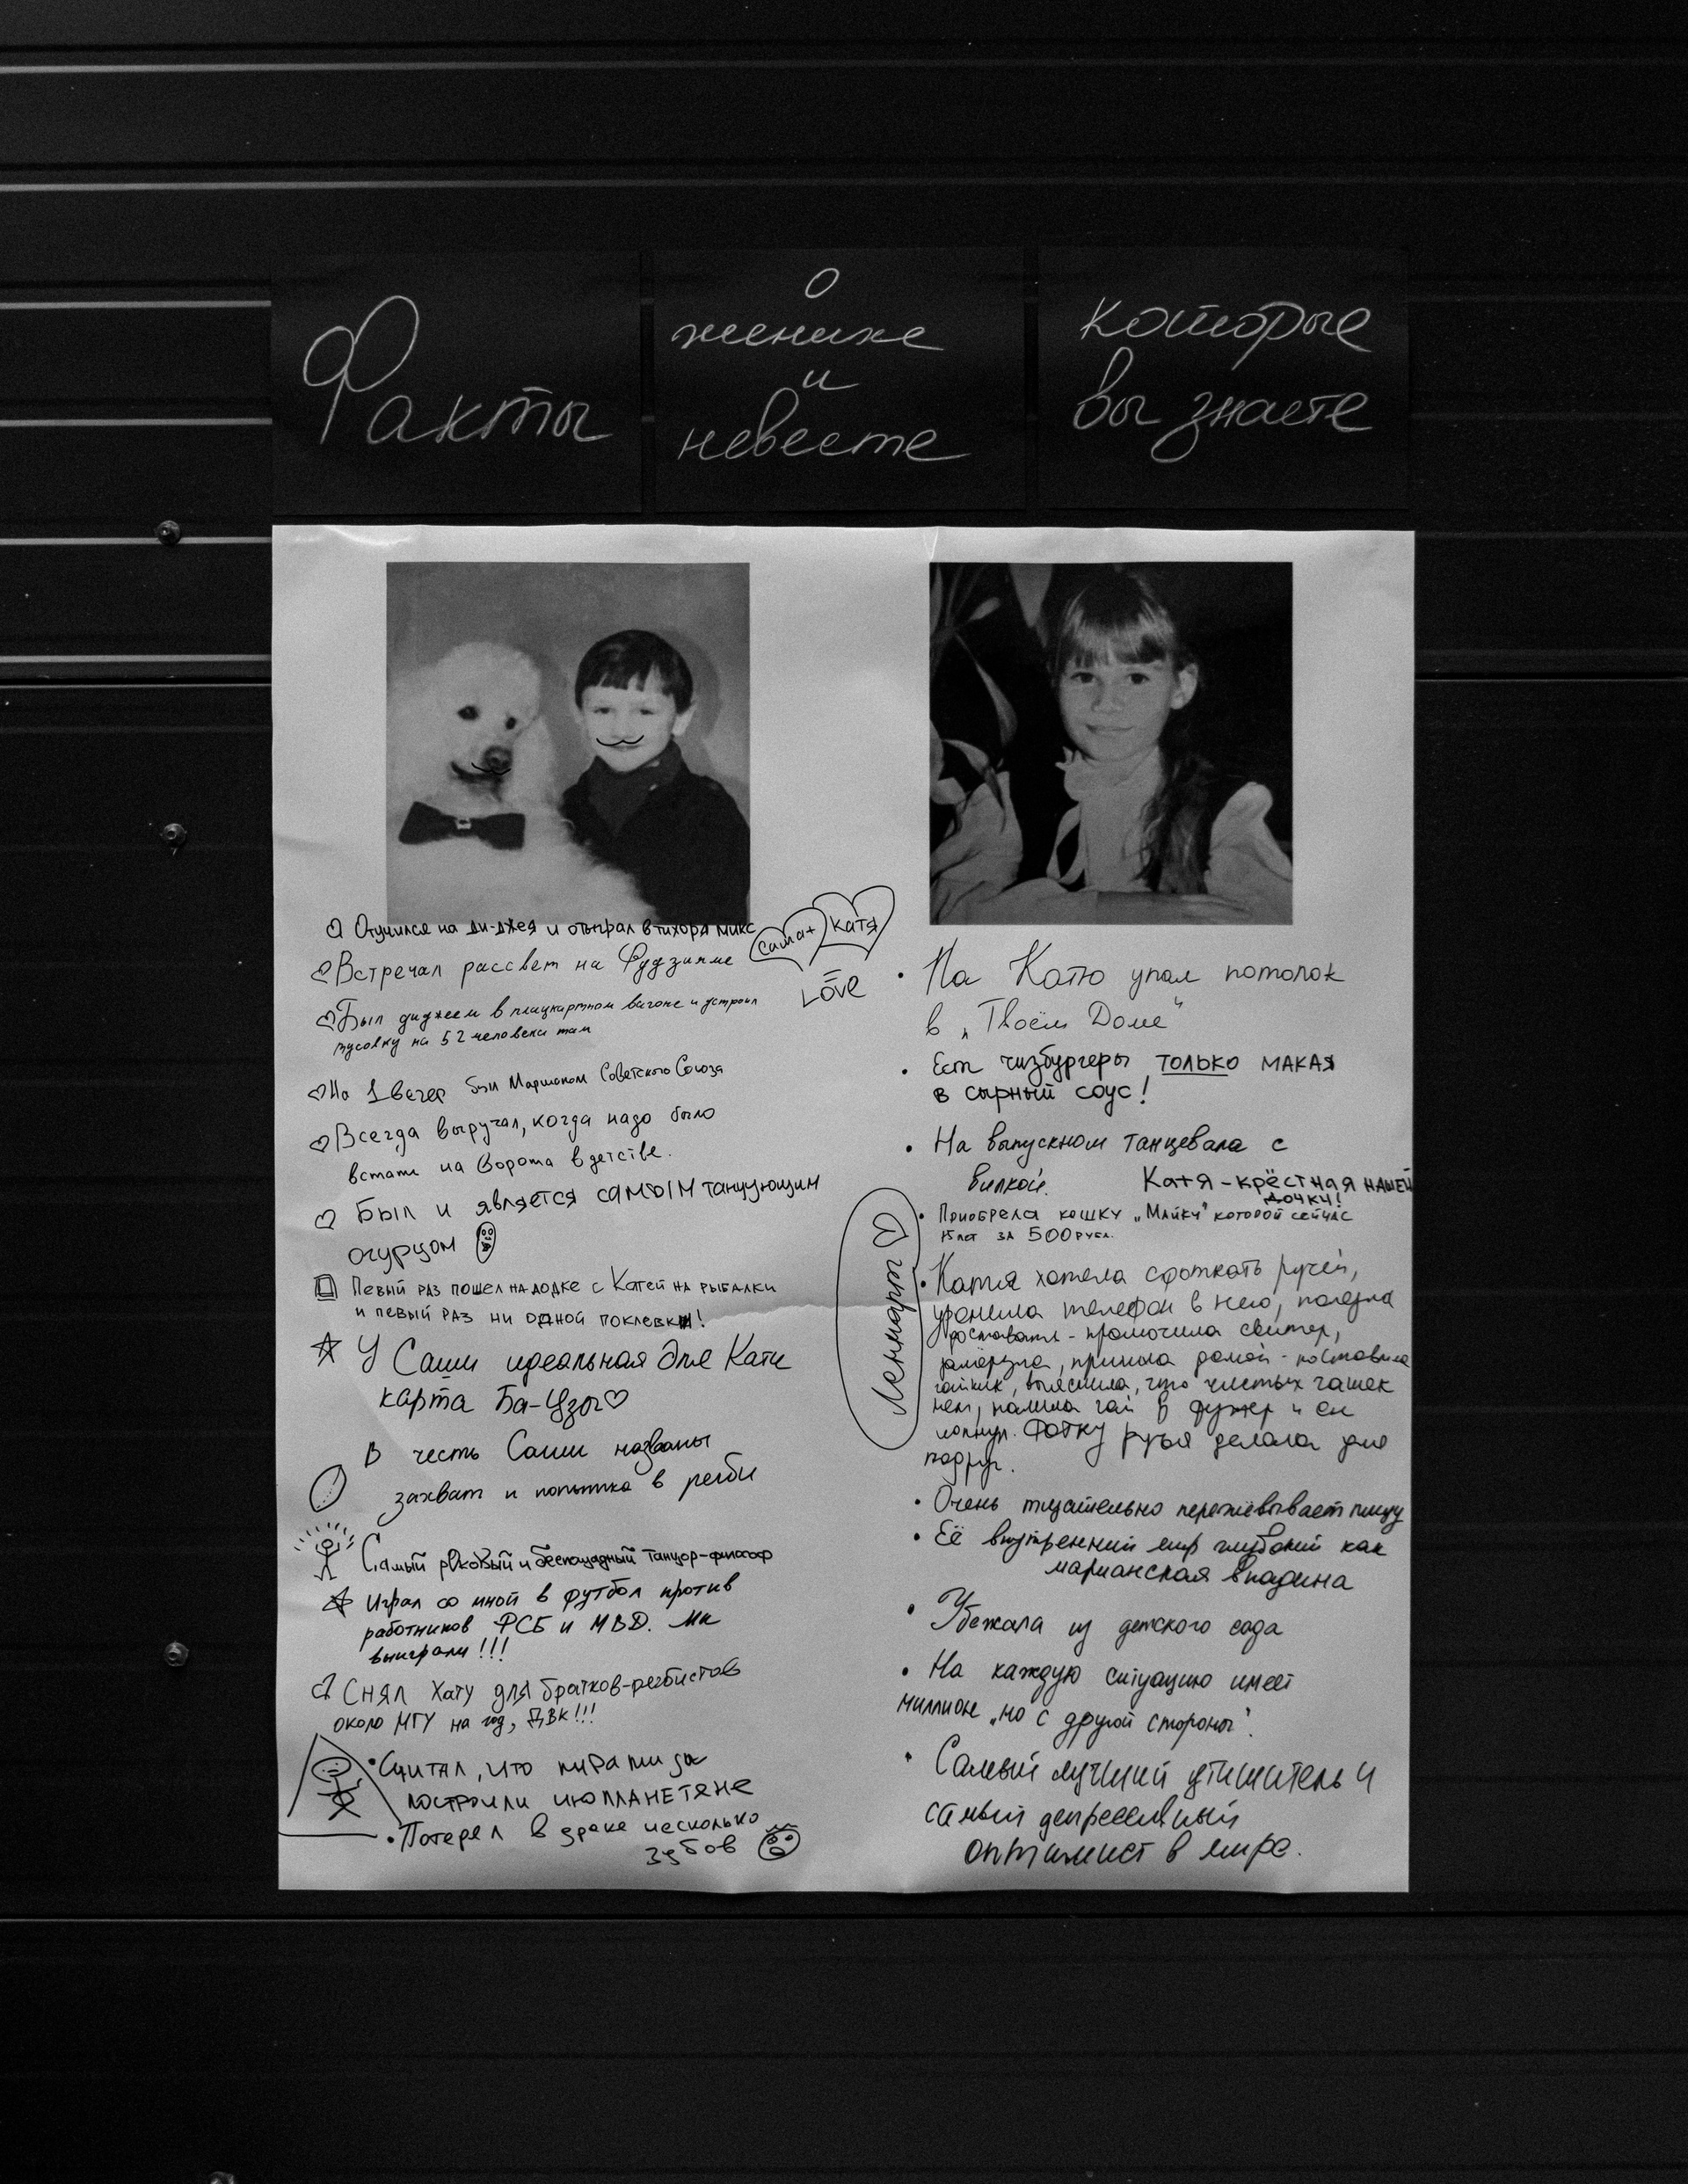 Факты
о
женихе
и
невесте
которые
вы знаете
Отучился на ди-джея и отыграл в тихоря микс
Встречал рассвет на Фудзияме
Был диджеем в плацкартном вагоне и устроил
тусовку на 52 человека там
На 1 вечер был Маршалом Советского Союза
Всегда выручал, когда надо было
встать на ворота в детстве.
Был и является самым танцующим
огурцом
Певый раз пошел на лодке с Катей на рыбалки
и певый раз ни одной поклевки!
У Саши идеальная для Кати
карта Ба-Цзы
В честь Саши названы
захват и попытка в регби
Самый роковый и беспощадный танцор-философ
Играл со мной в футбол против
работников ФСБ и МВД. Мы
выиграли!!!
Снял хату для братков-регбистов
около МГУ на год, ДВК!!!
Считал, что пирамиды
построили инопланетяне
Потерял в драке несколько
зубов
Саша+
Катя
Love
На Катю упал потолок
в „Твоём Доме"
Ест чизбургеры ТОЛЬКО макая
в сырный соус!
На выпускном танцевала с
вилкой.
Катя-крёстная нашей
дочки!
Приобрела кошку „Майку" которой сейчас
15 лет за 500 рубл.
Леннарт
Катя хотела сфоткать ручей,
уронила телефон в него, полезла
доставать - промочила свитер,
замёрзла, пришла домой - поставила
чайник, выяснила, что чистых чашек
нет, налила чай в фужер и он
лопнул. Фотку ручья делала для
подруг.
Очень тщательно пережёвывает пищу
Её внутренний мир глубокий как
марианская впадина
Убежала из детского сада
На каждую ситуацию имеет
миллион „но с другой стороны".
Самый лучший утешитель и
самый депрессивный
оптимист в мире.